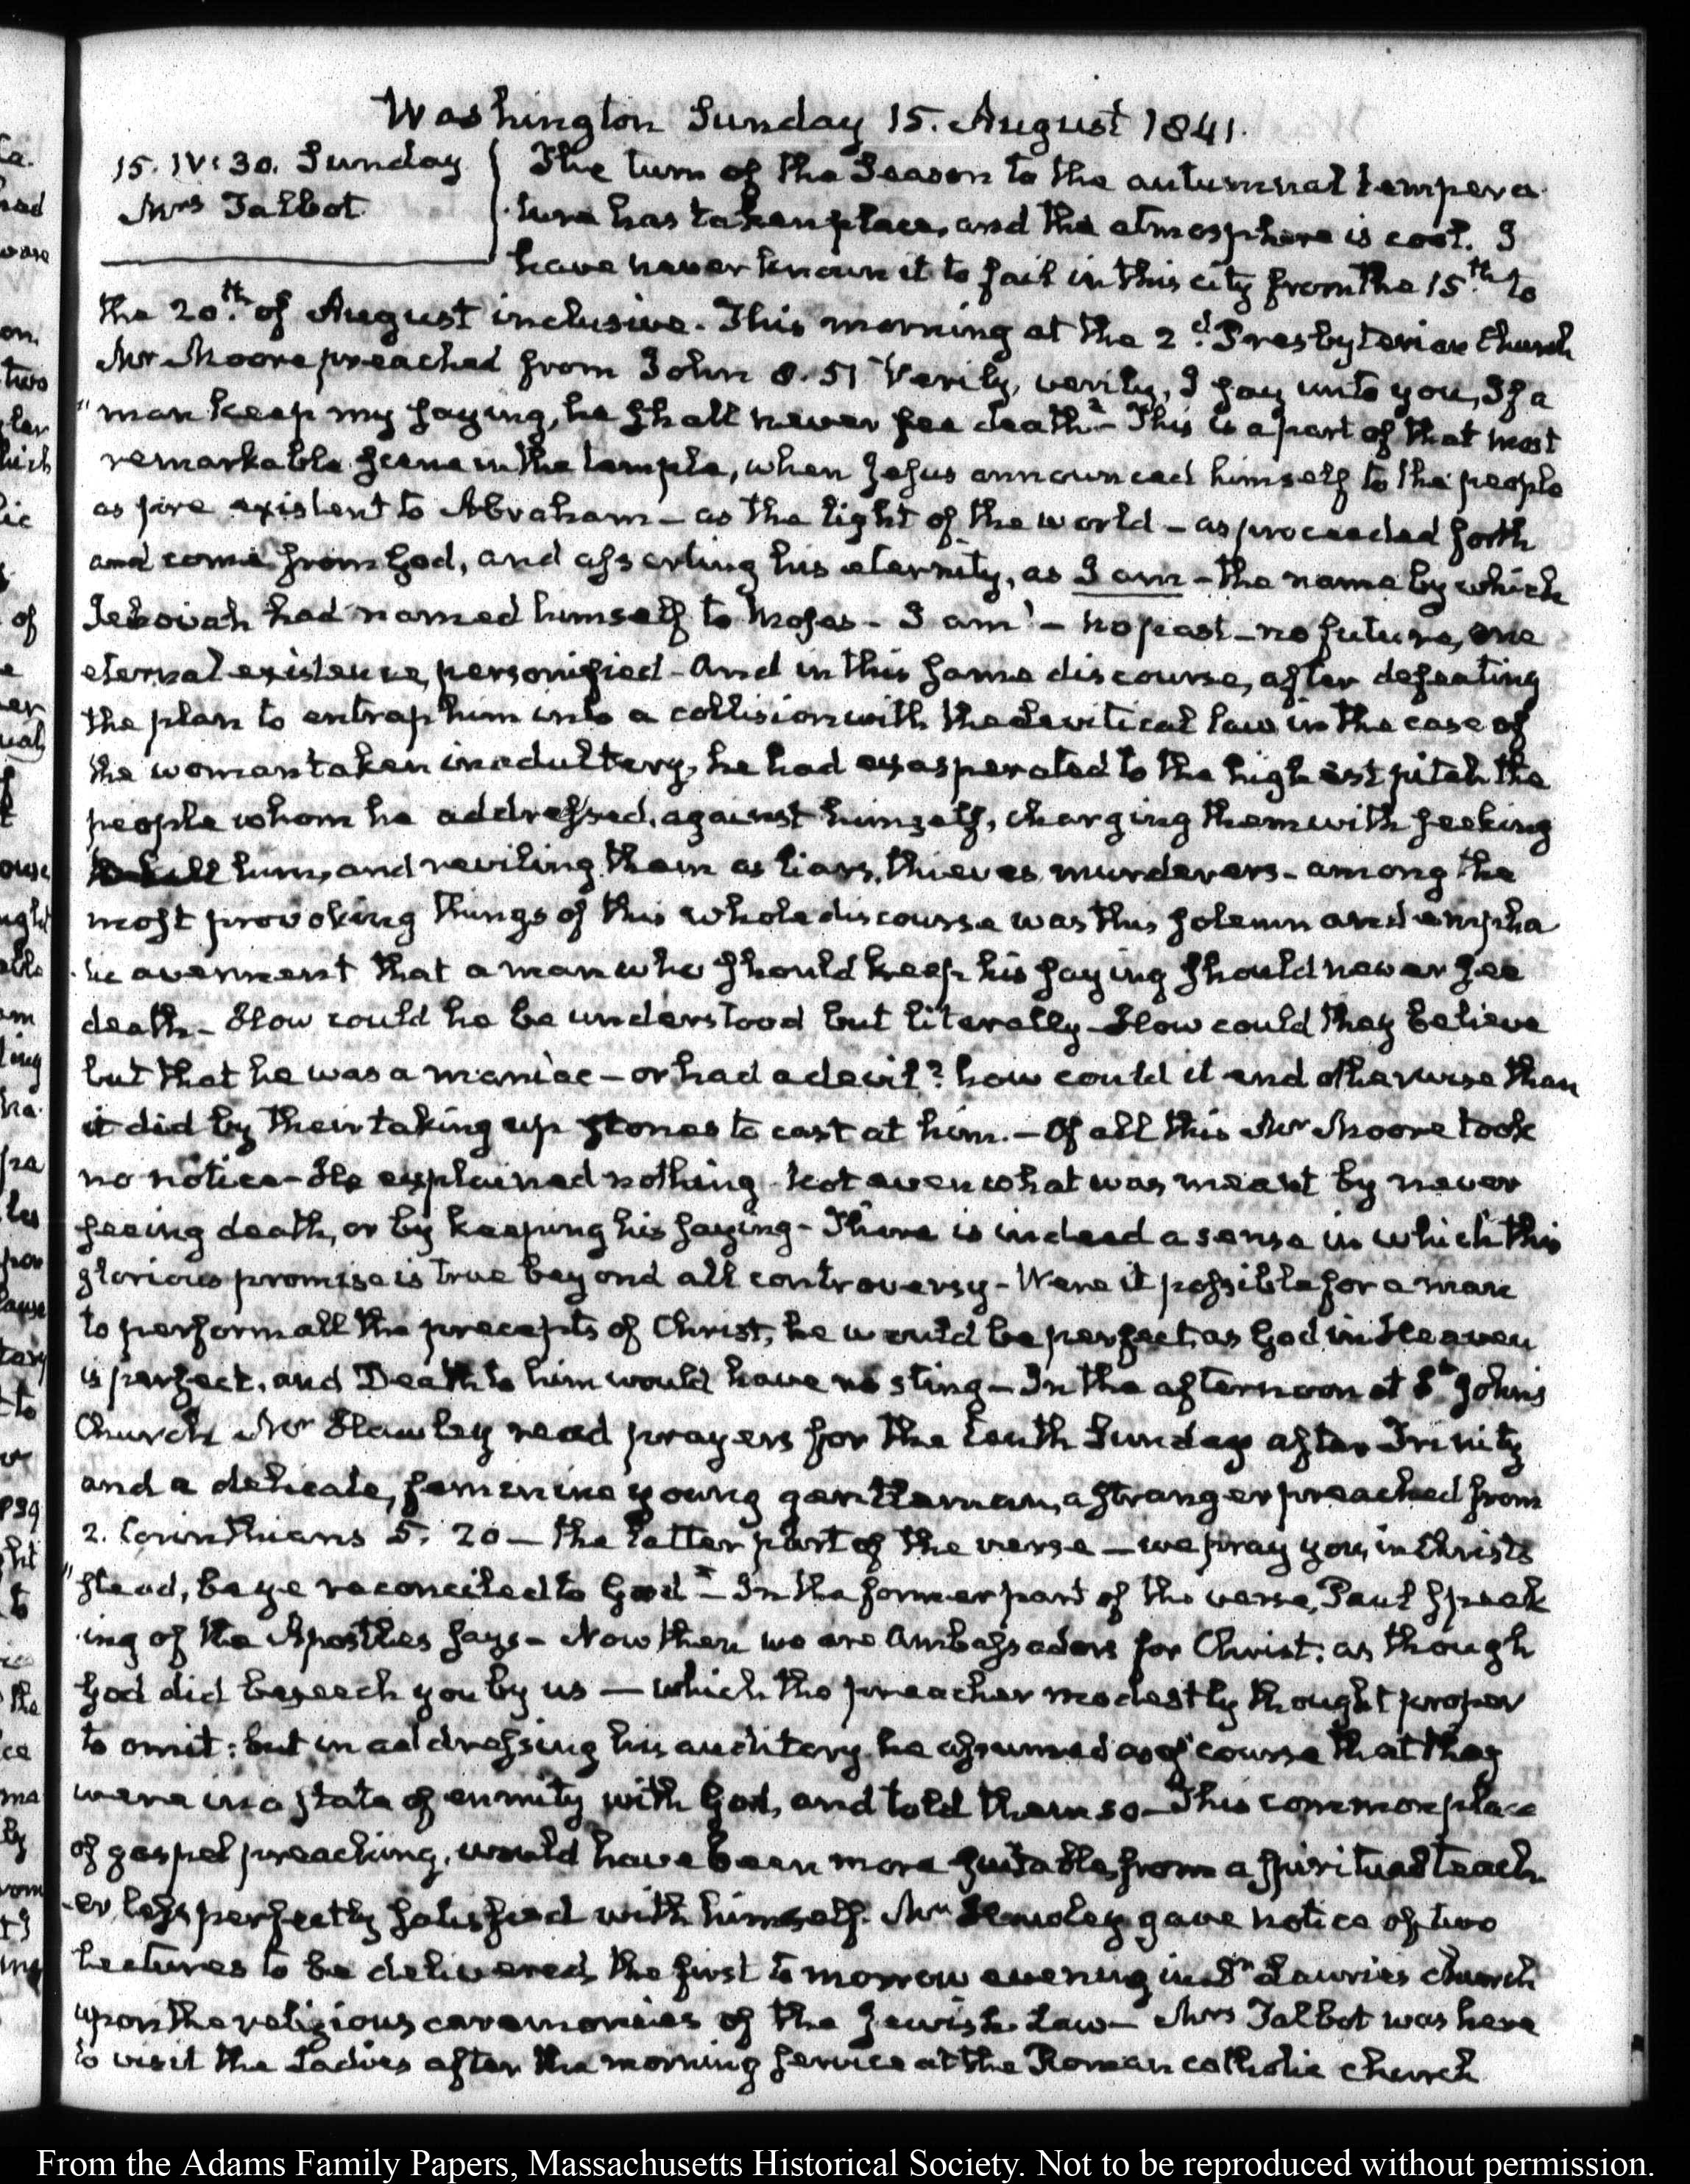 Washington Sunday 15. August 1841.
15. IV: 30. Sunday
Mrs Talbot
The turn of the Season to the autumnal tempera-
ture has taken place, and the atmosphere is cool. I
have never known it to fail in this city from the 15th. to
the 20th. of August inclusive. This morning at the 2d. Presbyterian Church
Mr Moore preached from John 8. 51 "Verily, verily, I say unto you, If a
"man keep my saying, he shall never see death"- This is a part of that most
remarkable scene in the temple, when Jesus announced himself to the people
as pre existent to Abraham - as the light of the world - as proceeded forth
and come from God, and asserting his eternity, as I am - the name by which
Jehovah had named himself to Moses - I am! - no past - no future, one
eternal existence, personified - And in this same discourse, after defeating
the plan to entrap him into a collision with the Levitical law in the case of
the woman taken in adultery, he had exasperated to the highest pitch the
people whom he addressed, against himself, charging them with seeking
to kill him, and reviling them as liars, thieves, murderers - among the
most provoking things of this whole discourse was this solemn and empha
tic averment that a man who should keep his saying should never see
death - How could he be understood but literally - How could they believe
but that he was a maniac - or had a devil? how could it end otherwise than
it did by their taking up stones to cast at him. - Of all this Mr Moore took
no notice - He explained nothing - Not even what was meant by never
seeing death, or by keeping his saying - There is indeed a sense in which this
glorious promise is true beyond all controversy - Were it possible for a man
to perform all the precepts of Christ, he would be perfect, as God in Heaven
is perfect, and Death to him would have no sting - In the afternoon at St John's
Church Mr Hawley read prayers for the tenth Sunday after Trinity
and a delicate, feminine young gentleman, a stranger preached from
2. Corinthians 5. 20 - the latter part of the verse - we pray you, in Christs
"stead, be ye reconciled to God" - In the former part of the verse, Paul speak
ing of the Apostles says - Now then we are Ambassadors for Christ: as though
God did beseech you by us - which the preacher modestly thought proper
to omit: but in addressing his auditory he assumed as of course that they
were in a state of enmity with God, and told them so - This common place
of gospel preaching, would have been more suitable from a spiritual teach
-er less perfectly satisfied with himself. Mr Hawley gave notice of two
Lectures to be delivered, the first to morrow evening in Dr Lauries church
upon the religious ceremonies of the Jewish Law - Mrs Talbot was here
to visit the Ladies after the morning service at the Roman catholic church
From the Adams Family Papers, Massachusetts Historical Society. Not to be reproduced without permission.